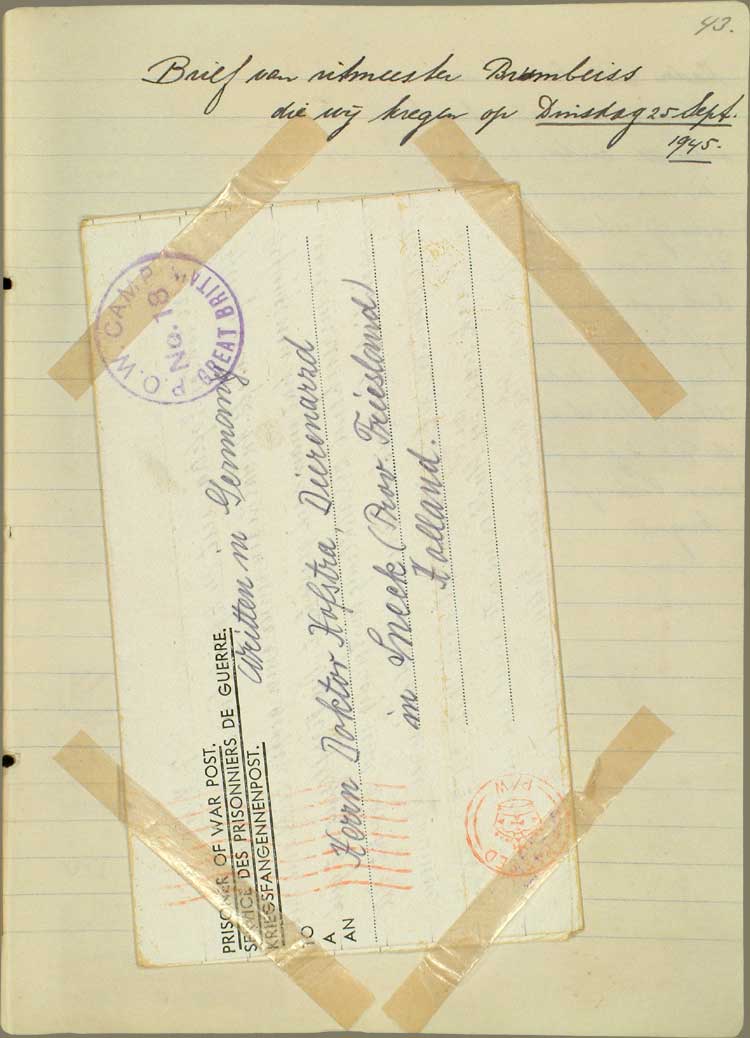 43.
Brief van ritmeester Brumbeiss
die wij kregen op Dinsdag 25 Sept.
1945.
P.O.W. CAMP
No. 18
GREAT BRITA
PRISONER OF WAR POST.
SERVICE DES PRISONNIERS DE GUERRE.
KRIEGSFANGENNENPOST.
Written in Germany
TO
A
AN
Herrn Doktor Hofstra, Dierenarzd
in Sneek (Prov. Friesland)
Holland.
P/W